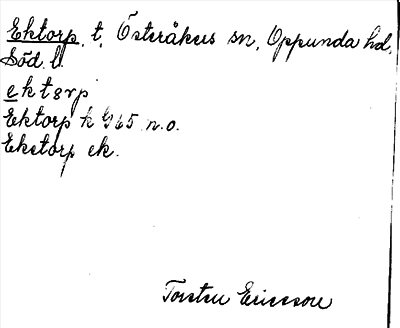 Ektorp, t, Österåkers sn, Oppunda hd,
Söd. l.
ektorp
Ektorp k G65 n.o.
Ekstorp ek.
Torsten Ericsson